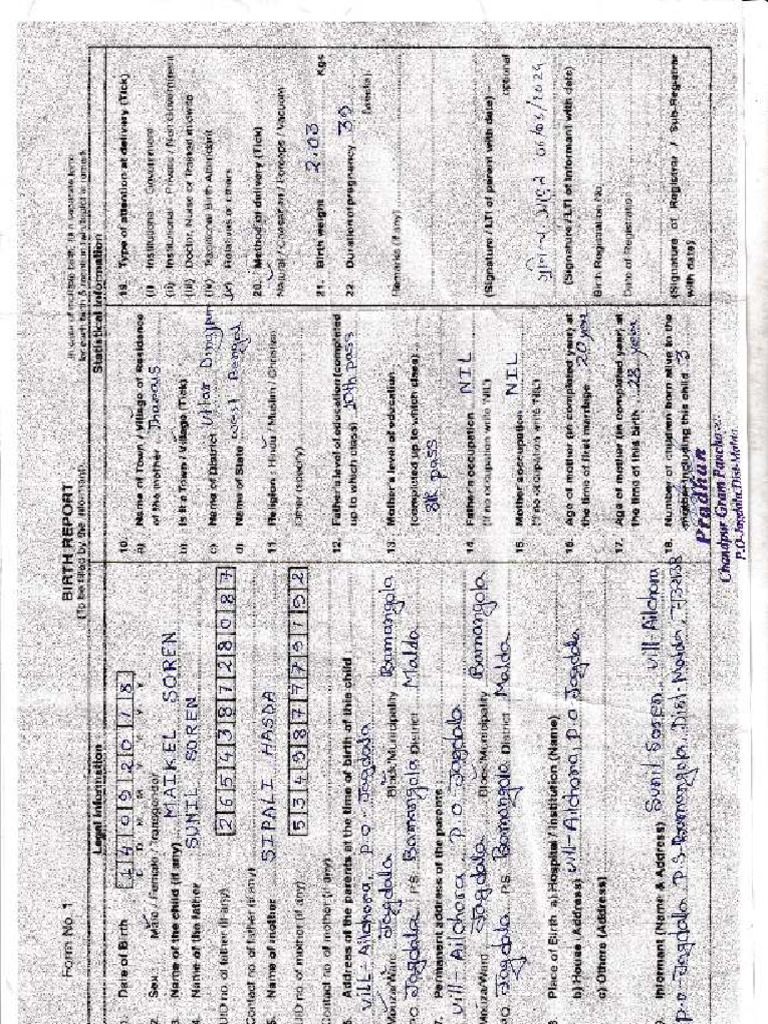 Form No. 1
BIRTH REPORT
(To be filled by the informant)
In case of multiple birth, fill a separate form
Legal Information
Date of Birth 14 09 2018
D D M M Y Y Y Y
Sex: Male / Female / Transgender
Name of the child (if any) MAIKEL SOREN
Name of the father SUNIL SOREN
UID no. of father (if any) 265438728087
Contact no. of father (if any)
Name of mother SIPALI HASDA
UID no. of mother (if any) 534987773792
Contact no. of mother (if any)
Address of the parents at the time of birth of this child
Vill- Ailchora, P.O- Jagdala
Mouza/Ward Jagdala Block/Municipality Bamangola
P.O Jagdala P.S Bamangola District Malda
7. Permanent address of the parents:
Vill- Ailchora, P.O Jagdala
Mouza/Ward Jagdala Block/Municipality Bamangola
P.O Jagdala P.S Bamangola District Malda
8 Place of Birth a) Hospital / Institution (Name)
b) House (Address) Vill- Ailchora, P.O Jagdala
c) Others (Address)
Informant (Name & Address) Sunil Soren Vill- Ailchora
P.O- Jagdala P.S- Bamangola, Dist- Malda,
Statistical Information
10. Name of Town / Village of Residence
of the mother
b) Is it a Town / Village (Tick)
c) Name of District Uttar Dinajpur
d) Name of State West Bengal
11 Religion : Hindu / Muslim / Christian
Other (specify)
12. Father's level of education (completed
up to which class) 10th pass
13. Mother's level of education
(completed up to which class)
8th pass
14. Father's occupation NIL
(If no occupation write 'NIL')
15. Mother's occupation NIL
(If no occupation write 'NIL')
16. Age of mother (in completed year) at
the time of first marriage 20 year
17. Age of mother (in completed year) at
the time of this birth 28 year
18. Number of children born alive to the
mother including this child 3
Pradhan
Chandpur Gram Panchayat
P.O-Jagdala, Dist-Malda
19. Type of attention at delivery (Tick)
(i) Institutional - Government
(ii) Institutional - Private / Non Government
(iii) Doctor, Nurse or Trained midwife
(iv) Traditional Birth Attendant
(v) Relations or others
20. Method of delivery (Tick)
Natural / Caesarean / Forceps / Vacuum
21. Birth weight 2.03 Kgs
22. Duration of pregnancy 39 (weeks)
Remarks (if any)
(Signature / LTI of parent with date) - optional
06/03/2024
(Signature / LTI of Informant with date)
Birth Registration No.
Date of Registration
(Signature of Registrar / Sub-Registrar
with date)